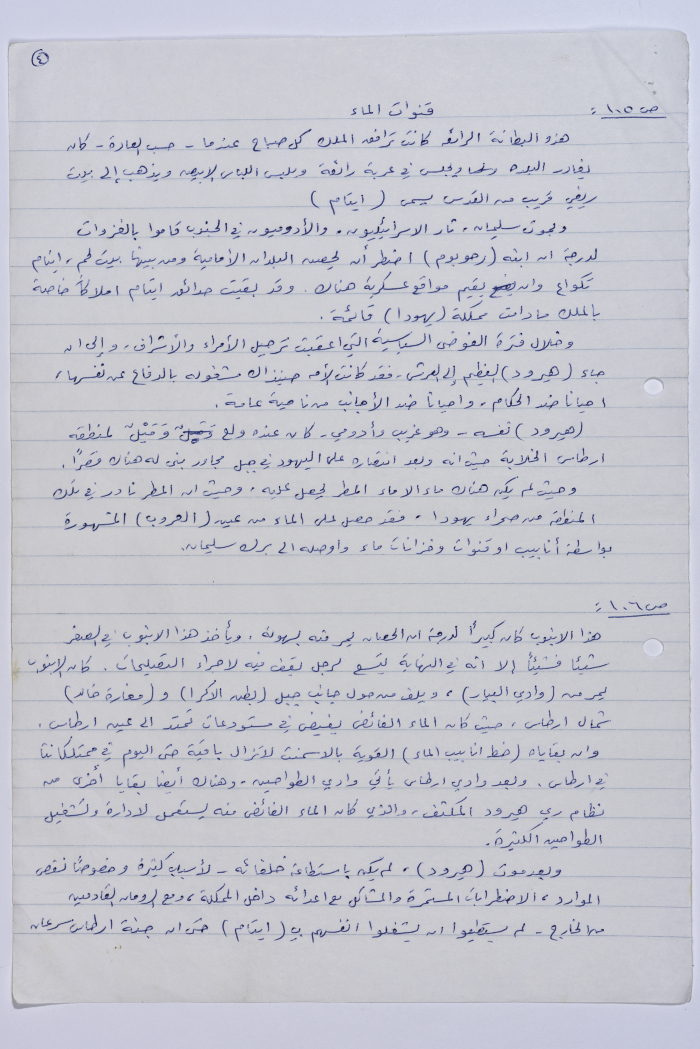 ٤
ص ١٠٥ : قنوات الماء
هذه البطانة الرائعة كانت ترافق الملك كل صباح عندما - حسب العادة - كان
يغادر البلاد ويجلس في عربة رائعة ويلبس اللباس الابيض ويذهب إلى بيت
ريفي قريب من القدس يسمى ( ايتام )
وبموت سليمان ، ثار الاسرائيليون ، والأدوميون في الجنوب قاموا بالغزوات
لدرجة ان ابنه ( رحوبوم ) اضطر أن يحصن البلدان الأمامية ومن بينها بيت لحم ، ايتام
تكواع وان يقيم مواقع عسكرية هناك . وقد بقيت حدائق ايتام املاكاً خاصة
بالملك ما دامت مملكة ( يهودا ) قائمة .
وخلال فترة الفوضى السياسية التي اعقبت ترحيل الأمراء والأشراف ، وإلى ان
جاء ( هيرود ) العظيم إلى العرش ، فقد كانت الأمه حينذاك مشغوله بالدفاع عن نفسها ،
احيانا ضد الحكام ، واحيانا ضد الأجانب من ناحية عامة .
( هيرود ) نفسه - وهو غريب وأدومي - كان عنده ولع وَمَيْلٌ لمنطقة
ارطاس الخلابة حيث انه وبعد انتصاره على اليهود في جبل مجاور بنى له هناك قصرًا .
وحيث لم يكن هناك ماء الا ماء المطر ليحصل عليه ، وحيث ان المطر نادر في تلك
المنطقة من صحراء يهودا ، فقد حصل على الماء من عين ( العروب ) المشهورة
بواسطة أنابيب او قنوات وخزانات ماء واوصله الى برك سليمان .
ص ١٠٦ :
هذا الانبوب كان كبيرًا لدرجة ان الحصان يمر فيه بسهولة . ويأخذ هذا الانبوب في الصغر
شيئًا فشيئًا إلا انه في النهاية يتسع لرجل يقف فيه لاجراء التصليحات . كان الانبوب
يمر من ( وادي البيار ) ، ويلف من حول جانب جبل ( بطن الاكرا ) و ( مغارة خالد )
شمال ارطاس ، حيث كان الماء الفائض يفيض في مستودعات تمتد الى عين ارطاس .
وان بقاياه ( خط انابيب الماء ) القوية بالاسمنت لا تزال باقية حتى اليوم في ممتلكاتنا
في ارطاس . وبعد وادي ارطاس يأتي وادي الطواحين ، وهناك أيضا بقايا أخرى من
نظام ري هيرود المكثف ، والذي كان الماء الفائض منه يستعمل لادارة وتشغيل
الطواحين الكثيرة .
وبعد موت ( هيرود ) ، لم يكن باستطاعة خلفائه - لأسباب كثيرة وخصوصًا نقص
الموارد ، الاضطرابات المستمرة والمشاكل مع اعدائه داخل المملكة ، ومع الرومان القادمين
من الخارج - لم يستطيعوا ان يشغلوا انفسهم بـ ( ايتام ) حتى ان جنة ارطاس سرعان